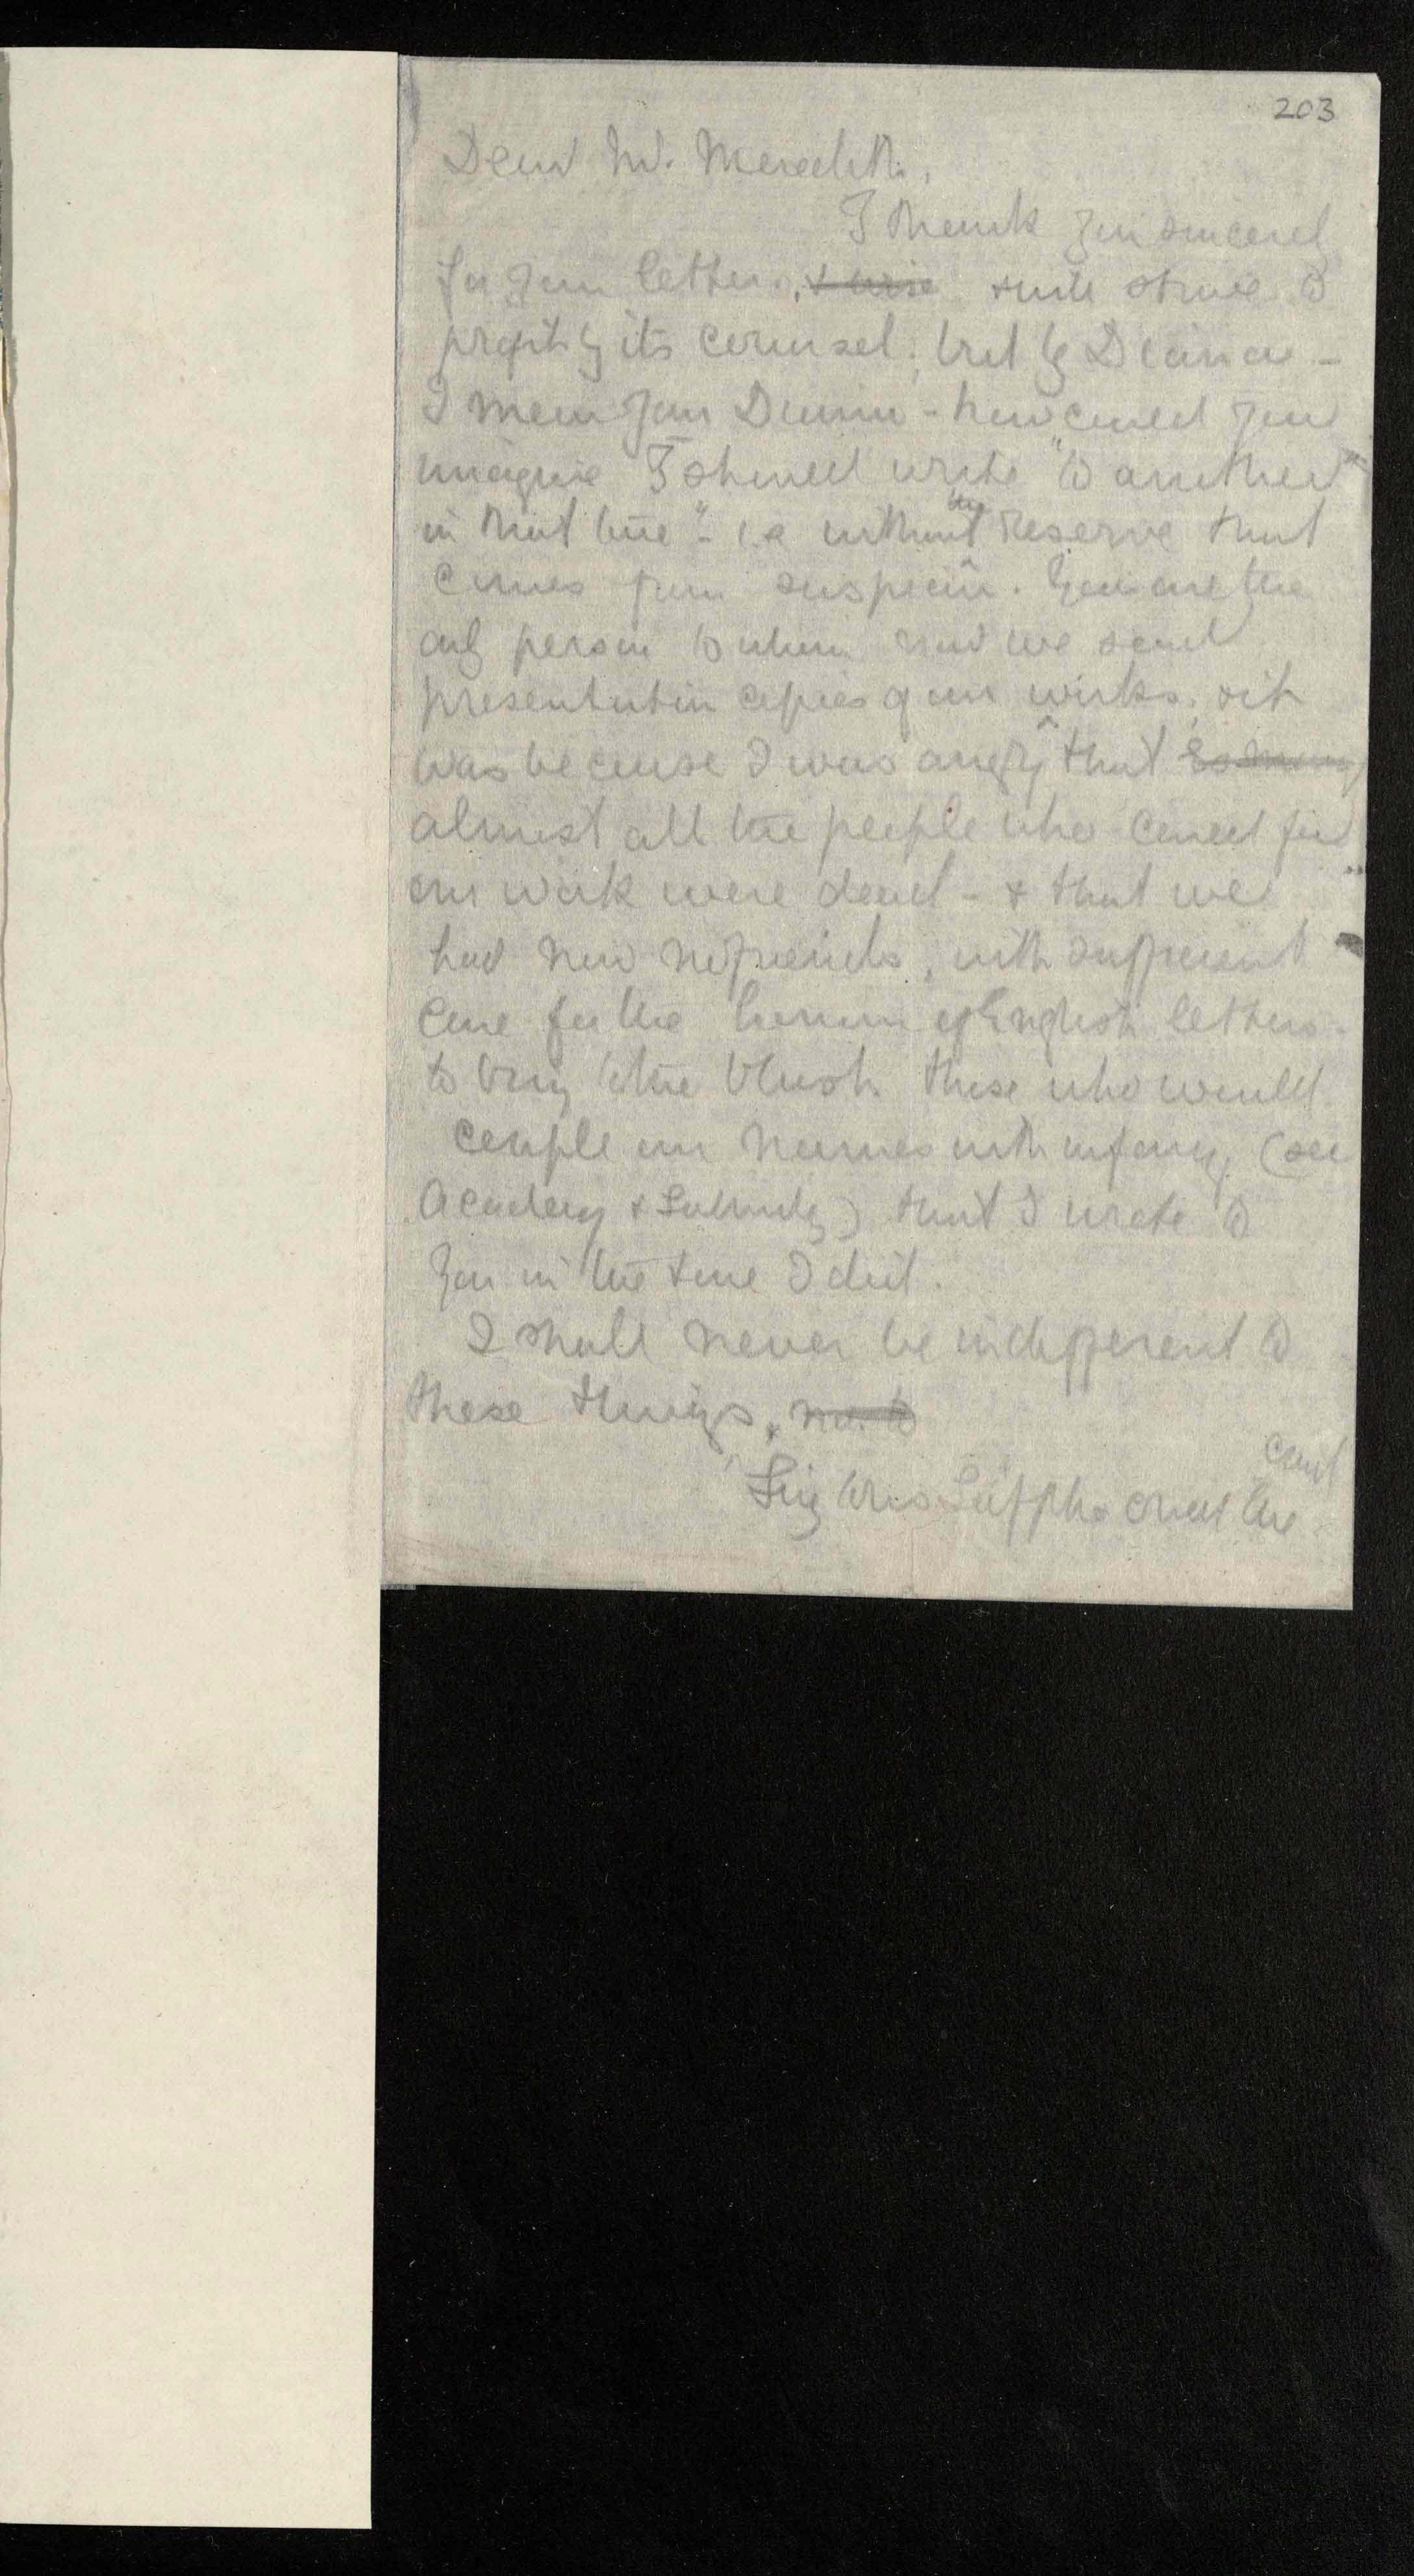 203
Dear Mr. Meredith,
I thank you sincerely
for your letter, & will strive to
profit by its counsel; but by Diana -
I mean your Diana - how could you
imagine I should write "to another
in that line" - i.e without the reserve that
comes from suspicion. You are the
only person to whom now we send
presentation copies of our works; & it
was because I was angry that so many
almost all the people who cared for
our work were dead - & that we
had now no friends, with sufficient
care for the honour of English letters
to bring to the blush those who would
couple our names with infamy, (see
Academy & Saturday) that I wrote to
you in the tone I did.
I shall never be indifferent to
these things, nor to
Sappho